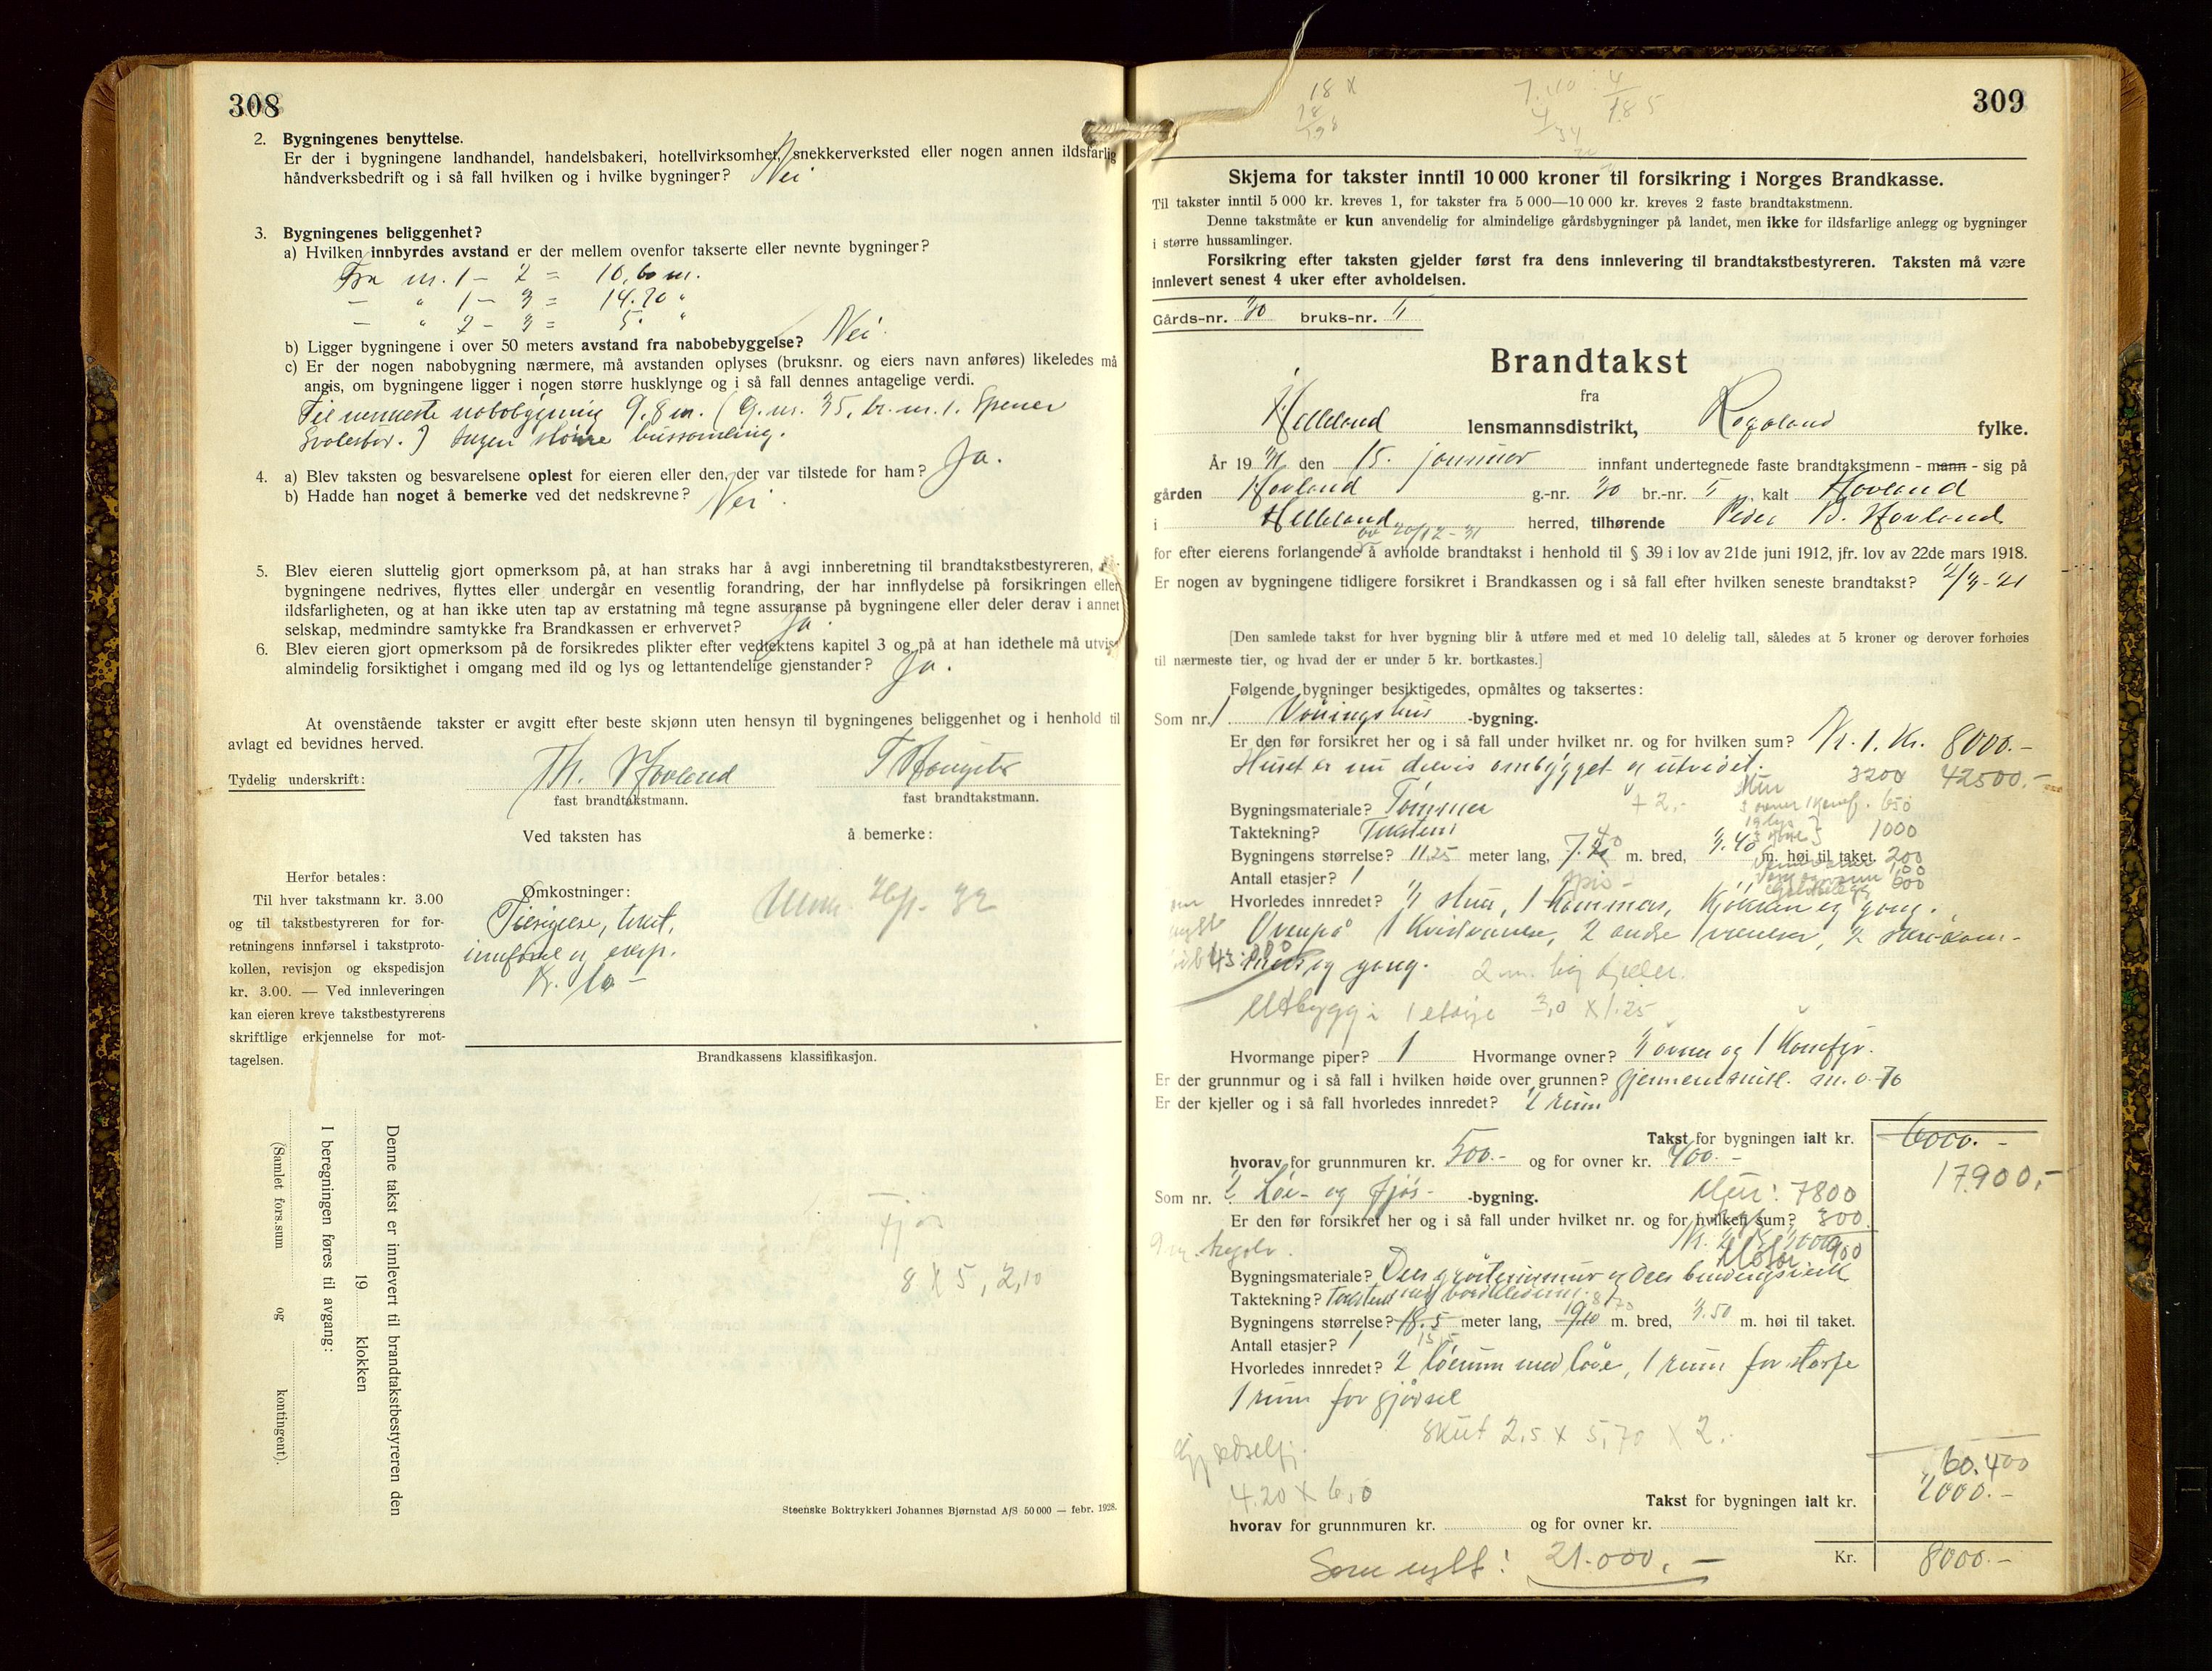 308
2. Bygningenes benyttelse.
Er der i bygningene landhandel, handelsbakeri, hotellvirksomhet, snekkerverksted eller nogen annen ildsfarlig
håndverksbedrift og i så fall hvilken og i hvilke bygninger? Nei
3. Bygningenes beliggenhet?
a) Hvilken innbyrdes avstand er der mellem ovenfor takserte eller nevnte bygninger?
Fra nr. 1 - 2 = 10,60 m.
— " 1 - 3 = 14.70 "
— " 2 - 3 = 5. "
b) Ligger bygningene i over 50 meters avstand fra nabobebyggelse? Nei
c) Er der nogen nabobygning nærmere, må avstanden oplyses (bruksnr. og eiers navn anføres) likeledes må
angis, om bygningene ligger i nogen større husklynge og i så fall dennes antagelige verdi.
Til nermeste nabobygning 9,8 m. (G.nr. 35, br.nr. 1.
Ingen større hussamling.
4. a) Blev taksten og besvarelsene oplest for eieren eller den, der var tilstede for ham? Ja.
b) Hadde han noget å bemerke ved det nedskrevne? Nei.
5. Blev eieren sluttelig gjort opmerksom på, at han straks har å avgi innberetning til brandtakstbestyreren,
bygningene nedrives, flyttes eller undergår en vesentlig forandring, der har innflydelse på forsikringen eller
ildsfarligheten, og at han ikke uten tap av erstatning må tegne assuranse på bygningene eller deler derav i annet
selskap, medmindre samtykke fra Brandkassen er erhvervet? Ja
6. Blev eieren gjort opmerksom på de forsikredes plikter efter vedtektens kapitel 3 og på at han idethele må utvise
almindelig forsiktighet i omgang med ild og lys og lettantendelige gjenstander? Ja.
At ovenstående takster er avgitt efter beste skjønn uten hensyn til bygningenes beliggenhet og i henhold til
avlagt ed bevidnes herved.
Tydelig underskrift: Th. Hovland
fast brandtakstmann. fast brandtakstmann.
Ved taksten has å bemerke:
Herfor betales:
Til hver takstmann kr. 3.00
og til takstbestyreren for for-
retningens innførsel i takstproto-
kollen, revisjon og ekspedisjon
kr. 3.00. — Ved innleveringen
kan eieren kreve takstbestyrerens
skriftlige erkjennelse for mot-
tagelsen.
Omkostninger:
Tilsigelse, takst,
innførsel og eksp.
Kr. 10 -
Brandkassens klassifikasjon.
Denne takst er innlevert til brandtakstbestyreren den
19 klokken
I beregningen føres til avgang:
(Samlet fors.sum og kontingent).
Fjøs
8 X 5, 2,10
Steenske Boktrykkeri Johannes Bjørnstad A/S 50 000 — febr. 1928.
309
18 X
Skjema for takster inntil 10 000 kroner til forsikring i Norges Brandkasse.
Til takster inntil 5 000 kr. kreves 1, for takster fra 5 000—10 000 kr. kreves 2 faste brandtakstmenn.
Denne takstmåte er kun anvendelig for almindelige gårdsbygninger på landet, men ikke for ildsfarlige anlegg og bygninger
i større hussamlinger.
Forsikring efter taksten gjelder først fra dens innlevering til brandtakstbestyreren. Taksten må være
innlevert senest 4 uker efter avholdelsen.
Gårds-nr. 30 bruks-nr.
Brandtakst
fra
Helleland lensmannsdistrikt, Rogaland fylke.
År 19 den 15. januar innfant undertegnede faste brandtakstmenn - mann - sig på
gården Hovland g.-nr. 30 br.-nr. kalt Hovland
i Helleland herred, tilhørende Peder B. Hovland
av 20/12-31
for efter eierens forlangende å avholde brandtakst i henhold til § 39 i lov av 21de juni 1912, jfr. lov av 22de mars 1918.
Er nogen av bygningene tidligere forsikret i Brandkassen og i så fall efter hvilken seneste brandtakst?
[Den samlede takst for hver bygning blir å utføre med et med 10 delelig tall, således at 5 kroner og derover forhøies
til nærmeste tier, og hvad der er under 5 kr. bortkastes.]
Følgende bygninger besiktigedes, opmåltes og taksertes:
Som nr. 1 Våningshus -bygning.
Er den før forsikret her og i så fall under hvilket nr. og for hvilken sum? Nr. 1. Kr. 8000.-
Huset er nu delvis ombygget og utvidet. 3200 42500.-
Bygningsmateriale? Tømmer + 2,- 650
Taktekning? Taksten 1000
Bygningens størrelse? 11,25 meter lang, 7.40 m. bred, 3.40 m. høi til taket. 200
Antall etasjer? 1
Hvorledes innredet? 3 stuer, 1 kammers, kjøkken og gang.
Ovenpå 1 Kvistværelse, 2 andre værelser, 2
og gang. 2 m. høg kjeller.
Utbygg i 1 etasje 3,0 X 1.25
Hvormange piper? 1 Hvormange ovner? 3 ovner og 1 Komfyr.
Er der grunnmur og i så fall i hvilken høide over grunnen? gjennemsnitl. m. 0.70
Er der kjeller og i så fall hvorledes innredet? 2 rum
Takst for bygningen ialt kr. 6000.-
17.900,-
hvorav for grunnmuren kr. 500.- og for ovner kr. 400.-
Som nr. 2 Løe- og fjøs- -bygning. 7800
Er den før forsikret her og i så fall under hvilket nr. og for hvilken sum? 300
Bygningsmateriale? Dels gråstensmur og dels bindingsverk
Taktekning? Taksten
Bygningens størrelse? 18.5 meter lang, m. bred, 3.50 m. høi til taket.
Antall etasjer? 1
Hvorledes innredet? 2 løerum med løve, 1 rum for
1 rum for gjødsel
Skut 2,5 X 5,70 X 2.
4.20 X 6,0
60.400
Takst for bygningen ialt kr. 2000.-
hvorav for grunnmuren kr. og for ovner kr.
Som nytt: 21.000,- Kr. 8000.-